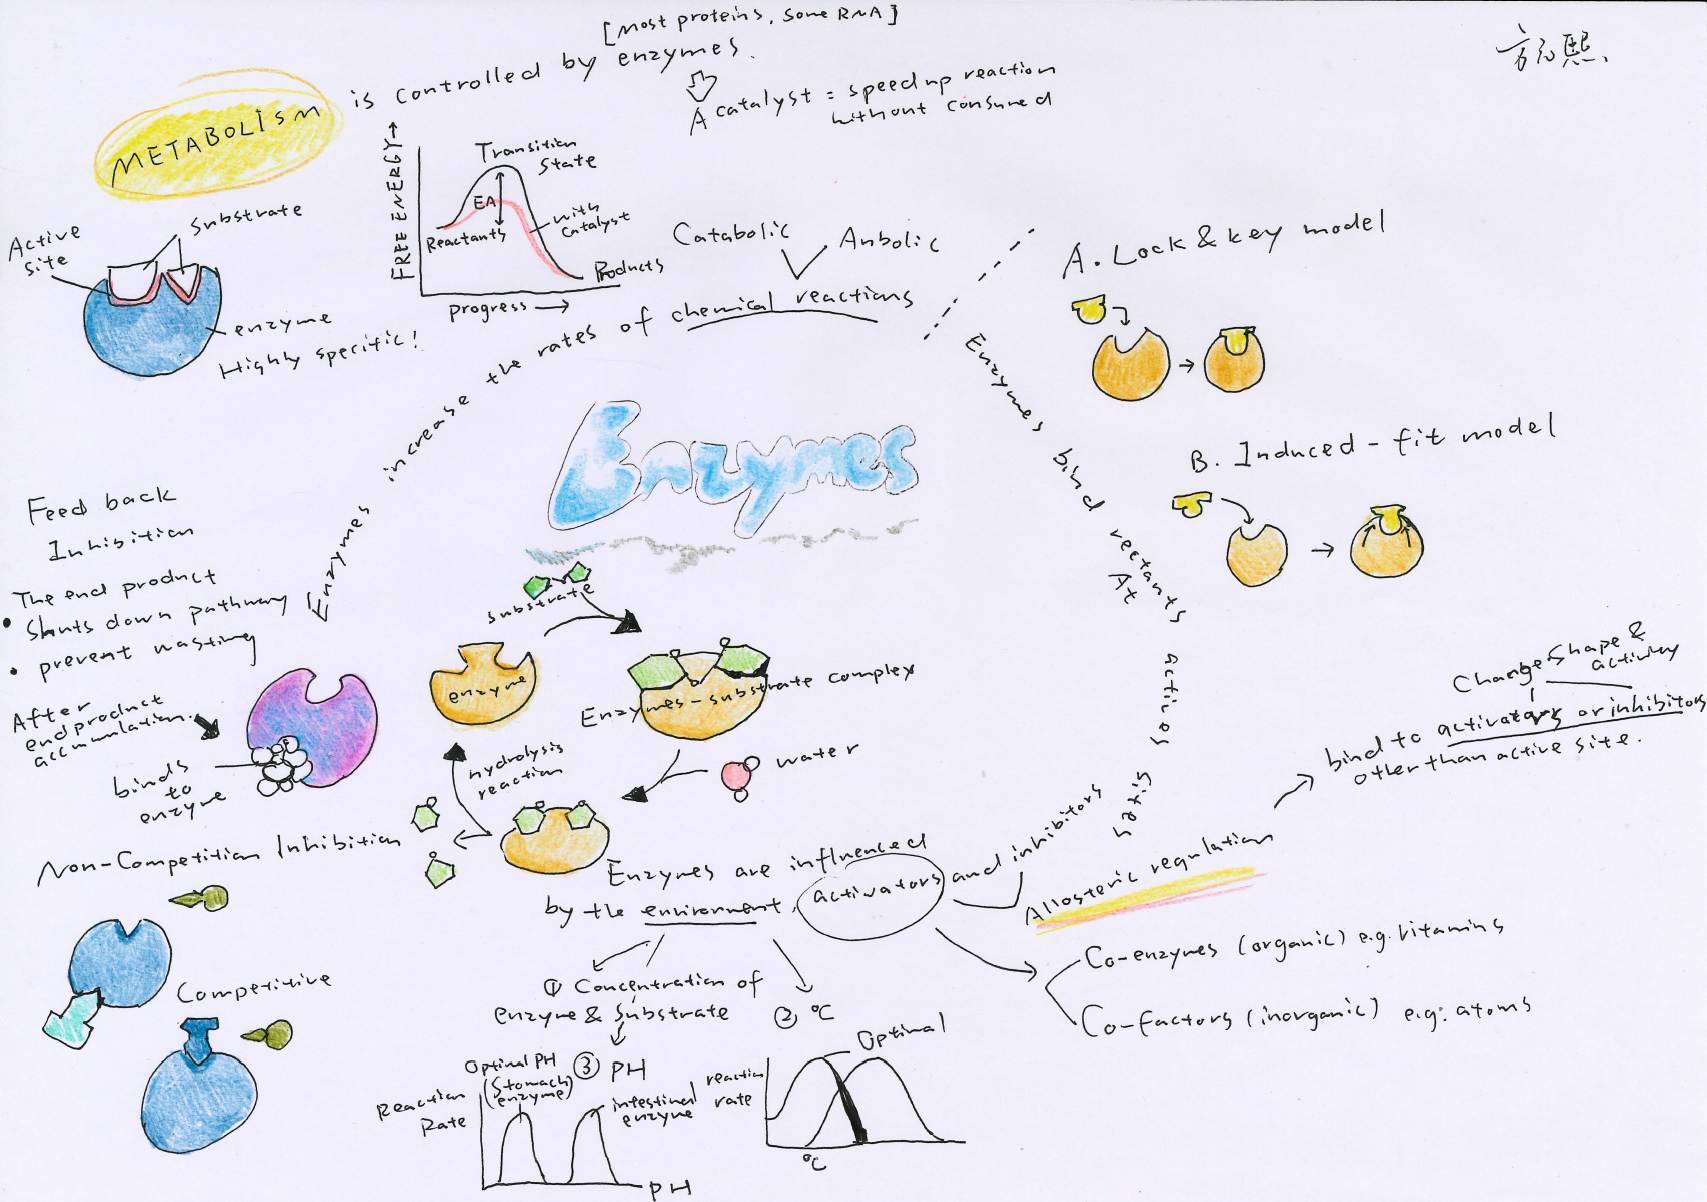 [Most proteins, Some RNA]
METABOLISM is controlled by enzymes.
A catalyst = speed up reaction
without consumed
方 熙.
FREE ENERGY →
Transition
State
EA
with
catalyst
Reactants
Products
progress →
Active
site
Substrate
enzyme
Highly specific!
Catabolic
Anbolic
Enzymes increase the rates of chemical reactions
Enzymes
A. Lock & key model
B. Induced-fit model
Enzymes bind rectants
At
actives
sites
Feed back
Inhibition
The end product
• Shuts down pathway
• prevent wasting
After
end product
accumulation.
binds
to
enzyme
substrate
enzyme
Enzymes-substrate complex
water
hydrolysis
reaction
Non-Competition Inhibition
Competitive
Enzymes are influenced
by the environment, activators and inhibitors
Allosteric regulation
Change Shape &
activity
bind to activators or inhibitors
other than active site.
Co-enzymes (organic) e.g. vitamins
Co-factors (inorganic) e.g: atoms
① Concentration of
enzyme & Substrate
② °C
③ PH
Optimal PH
(Stomach
enzyme)
intestinal
enzyme
Reaction
Rate
PH
Optimal
reaction
rate
°C